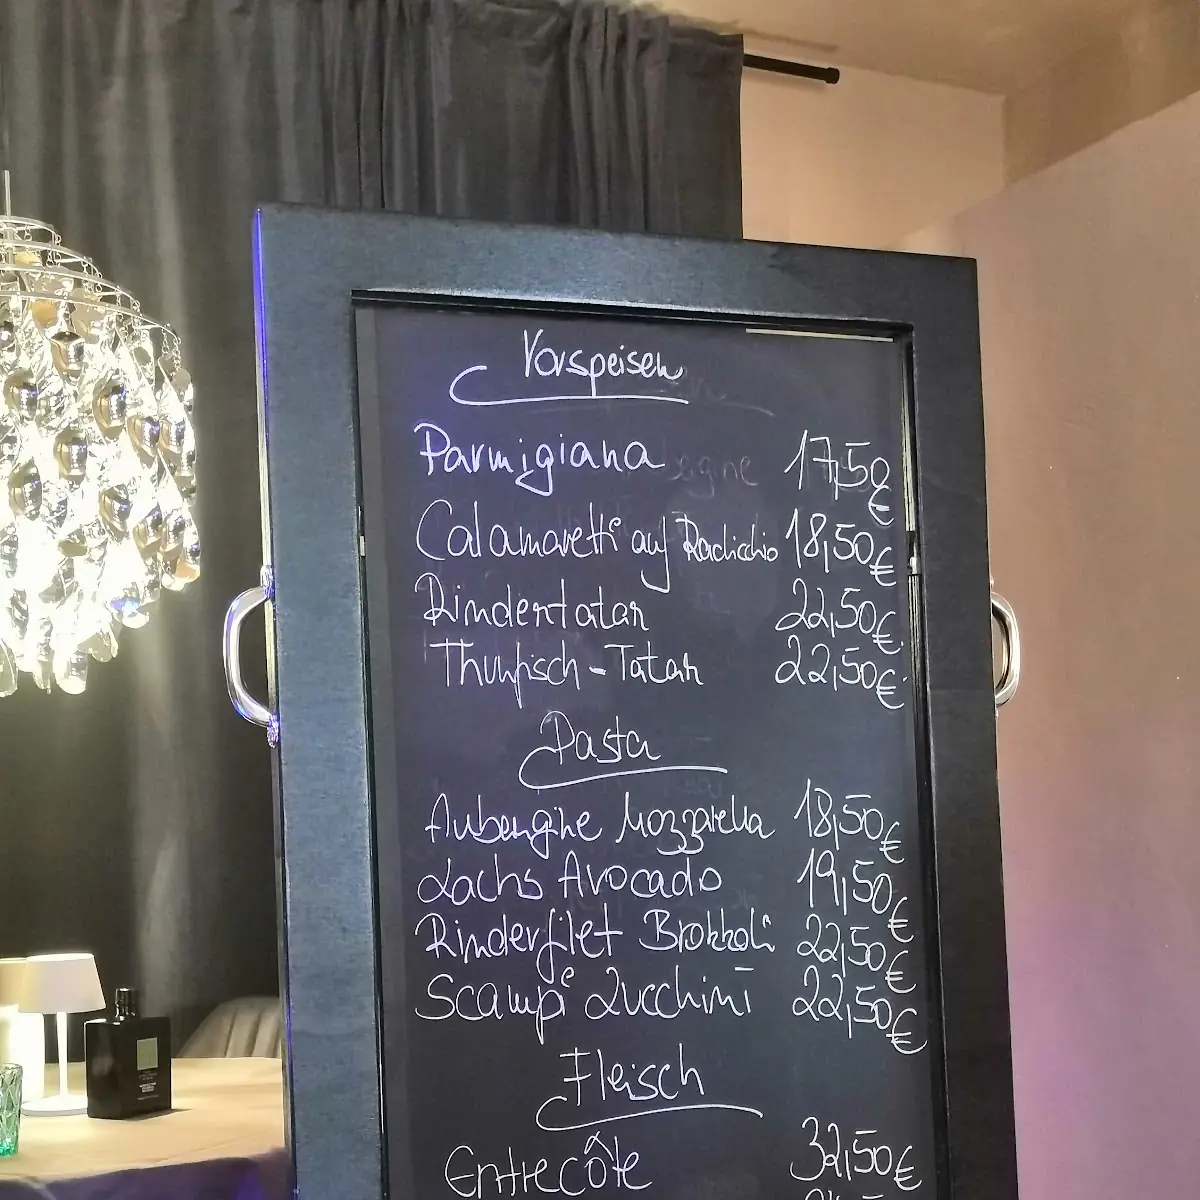 Vorspeisen
Parmigiana 17,50€
Calamaretti auf Radicchio 18,50€
Rindertatar 22,50€
Thunfisch-Tatar 22,50€
Pasta
Aubergine Mozzarella 18,50€
Lachs Avocado 19,50€
Rinderfilet Brokkoli 22,50€
Scampi Zucchini 22,50€
Fleisch
Entrecôte 32,50€